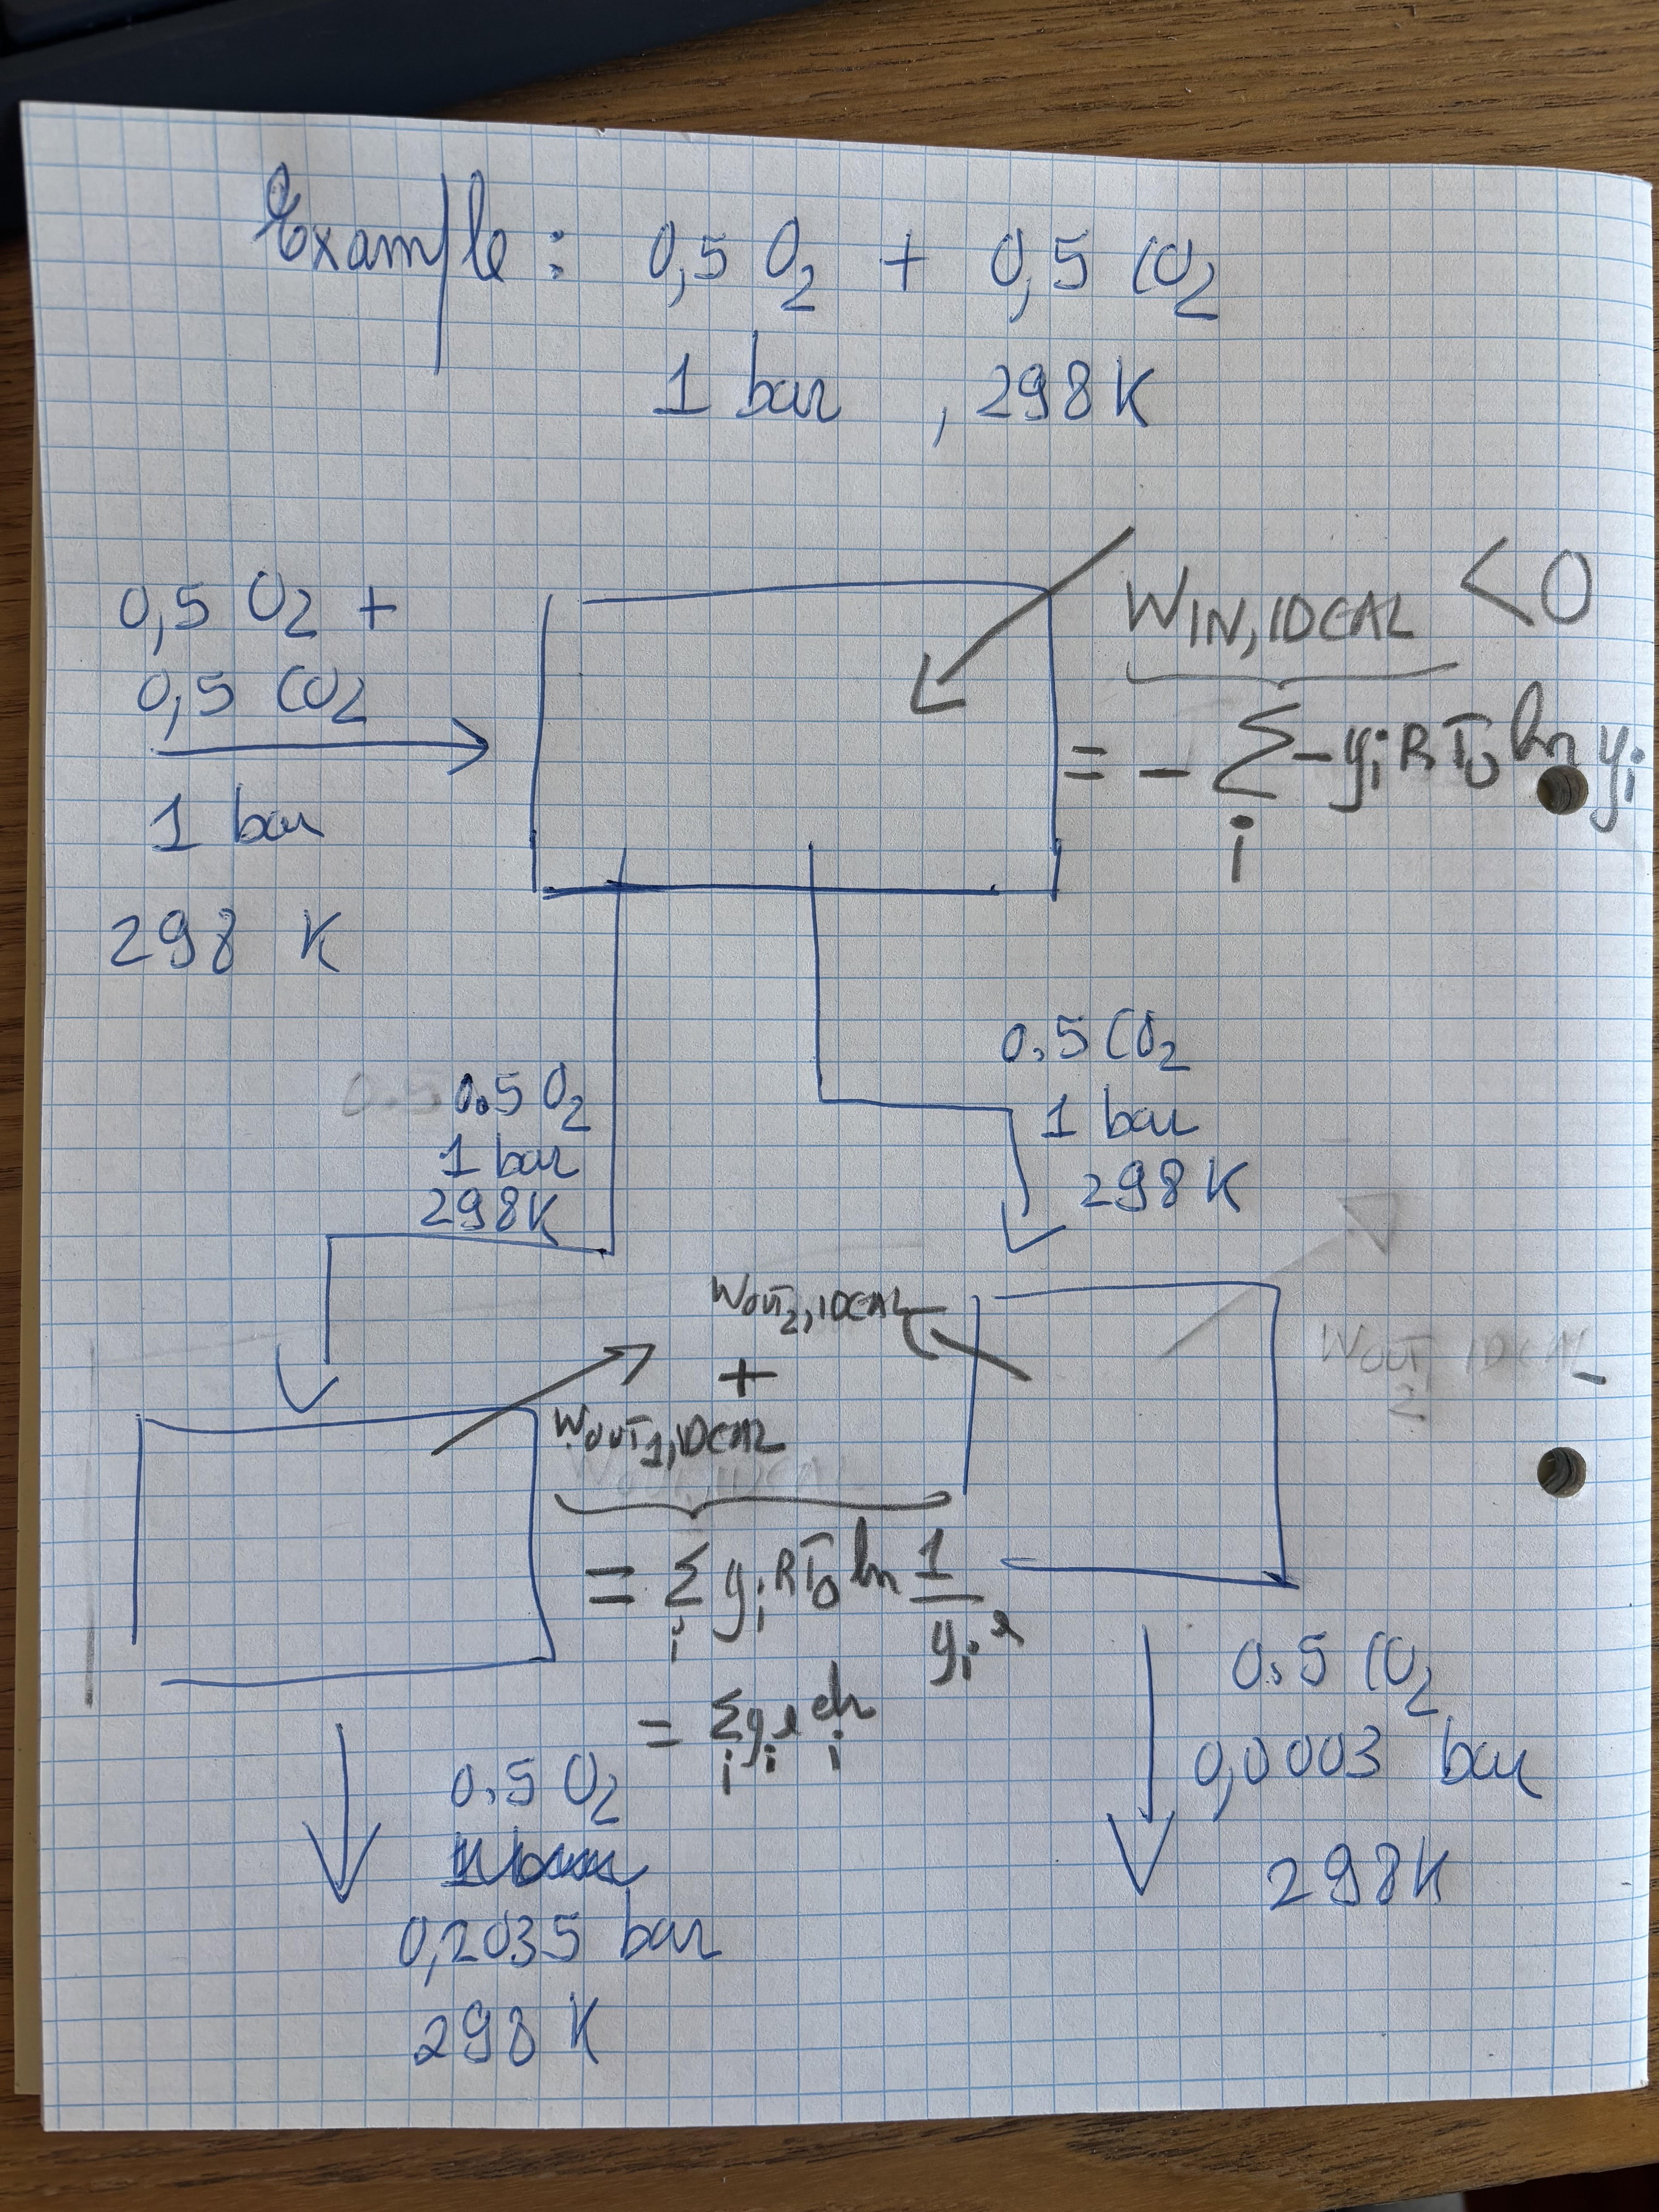 Example : 0,5 O2 + 0,5 CO2
1 bar , 298 K
0,5 O2 +
0,5 CO2
1 bar
298 K
WIN, IDEAL < 0
= - Σi - yi R T0 ln yi
0.5 O2
1 bar
298K
0.5 CO2
1 bar
298 K
WOUT2, IDEAL
+
WOUT1, IDEAL
= Σi yi RT0 ln 1/yi^e
= Σi yi ei^ch
WOUT2, IDEAL
0.5 O2
0,2035 bar
298 K
0.5 CO2
0,0003 bar
298K